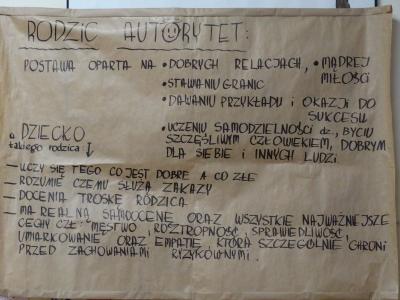 RODZIC AUTORYTET:
POSTAWA OPARTA NA • DOBRYCH RELACJACH, • MĄDREJ MIŁOŚCI
• STAWIANIU GRANIC
• DAWANIU PRZYKŁADU i OKAZJI DO SUKCESU
• UCZENIU SAMODZIELNOŚCI dz., BYCIU
SZCZĘŚLIWYM CZŁOWIEKIEM, DOBRYM
DLA SIEBIE I INNYCH LUDZI.
DZIECKO
takiego rodzica:
– UCZY SIĘ TEGO CO JEST DOBRE A CO ZŁE
– ROZUMIE CZEMU SŁUŻĄ ZAKAZY
– DOCENIA TROSKĘ RODZICA
– MA REALNĄ SAMOOCENĘ ORAZ WSZYSTKIE NAJWAŻNIEJSZE
CECHY CZŁ. MĘSTWO, ROZTROPNOŚĆ, SPRAWIEDLIWOŚĆ,
UMIARKOWANIE, ORAZ EMPATIĘ, KTÓRA SZCZEGÓLNIE CHRONI
PRZED ZACHOWANIAMI RYZYKOWNYMI.